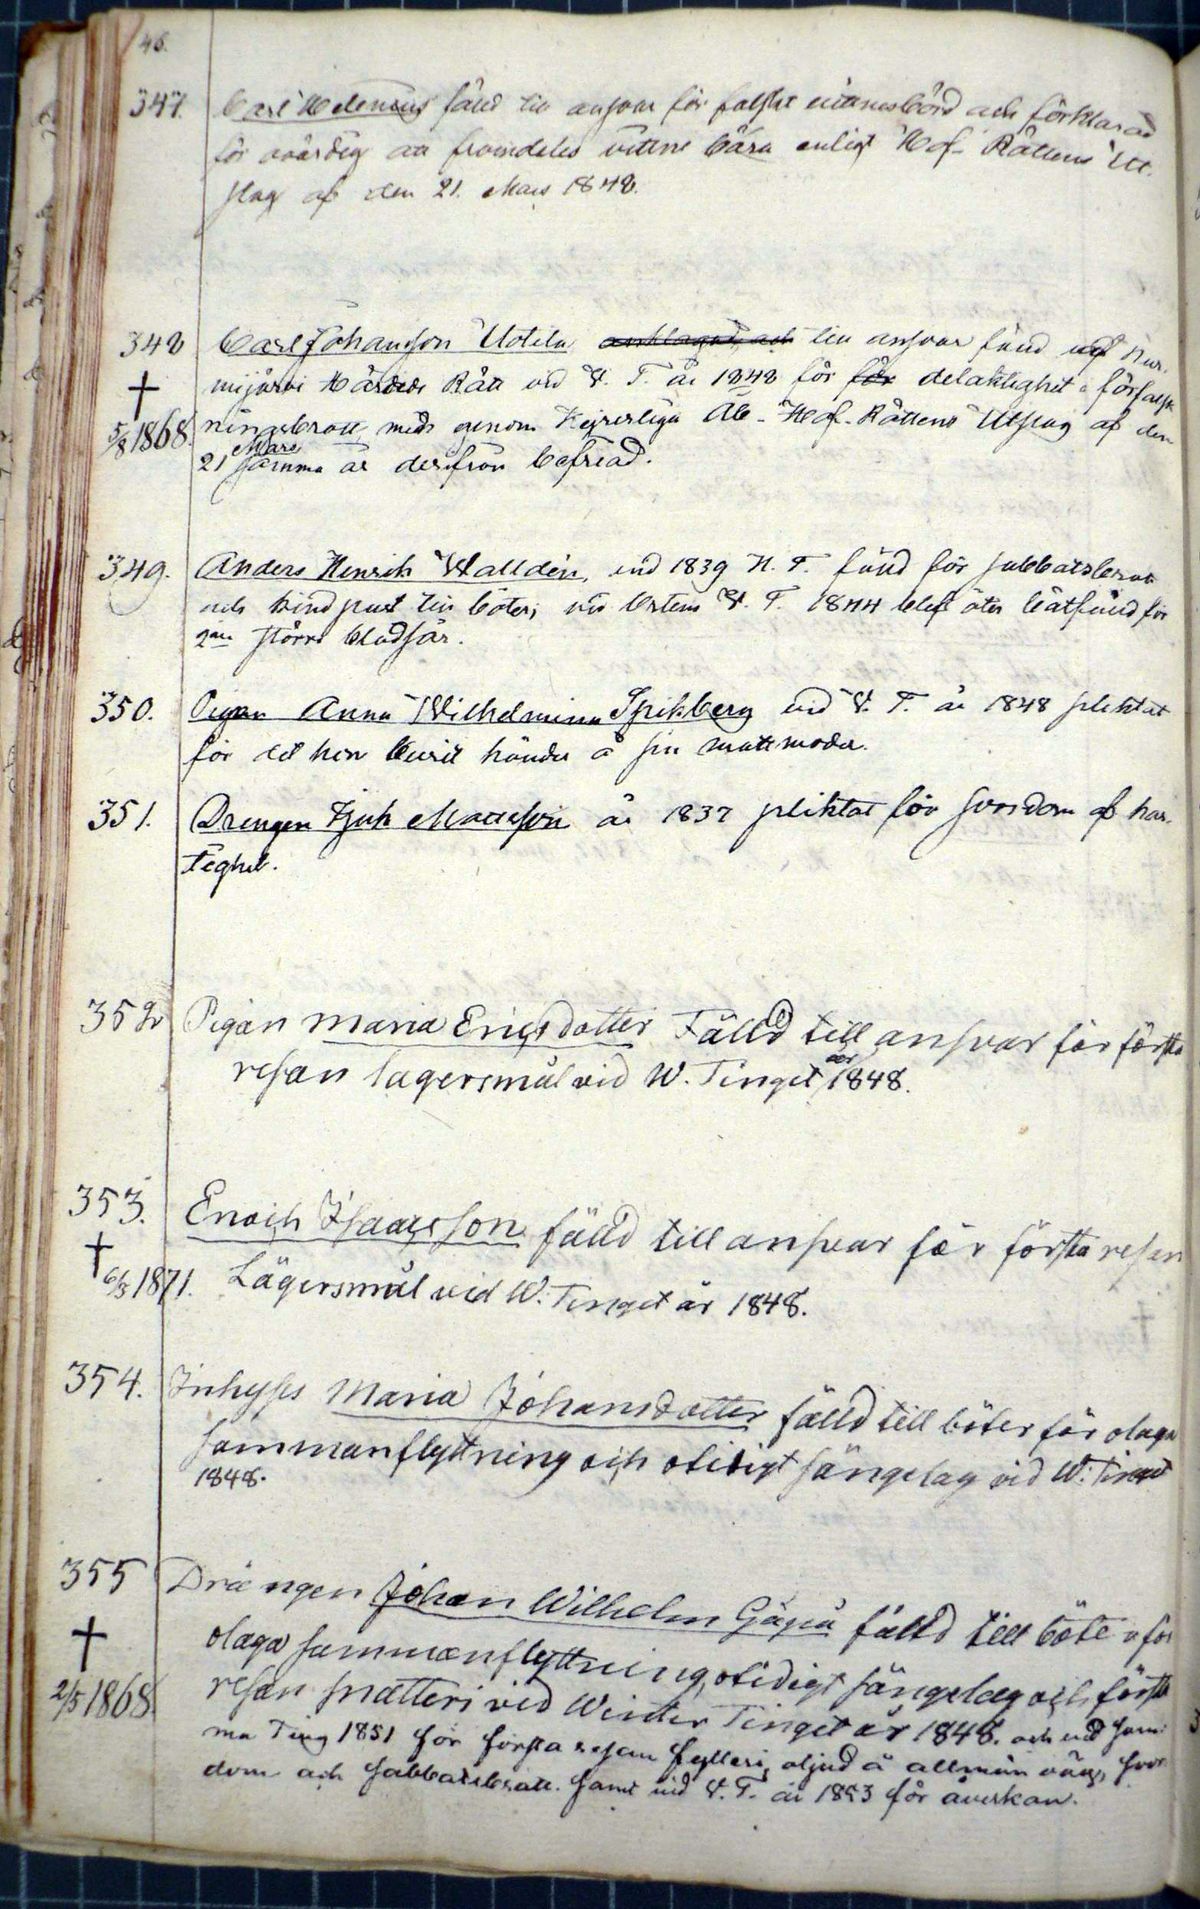 46.
347. Carl Helenius fälld till ansvar för falskt vittnesbörd och förklarad
för ovärdig att framdeles vittne bära enligt Hof-Rättens Ut-
slag af den 21. Mars 1848.
348 Carl Johansson Uotila anklagad, och till ansvar fälld vid Nur-
mijärvi Härads Rätt vid V. T. år 1848 för för delaktighet i förfalsk-
† 5/8 1868. ningsbrott, men genom Kejserliga Åbo-Hof-Rättens Utslag af den
21 Mars samma år derifrån befriad.
349. Anders Henrik Walldén, vid 1839 H. T. fälld för sabbatsbrott
och kindpust till böter; vid V. T. 1844 blef åter bötfälld för
2ne större blodsår.
350. Pigan Anna Wilhelmina Spikberg vid V. T. år 1848 pliktat
för det hon burit händer å sin matmoder.
351. Drengen Isak Mattsson år 1837 pliktat för svordom af has-
tighet.
352 Pigan Maria Ericsdotter Fälld till ansvar för första
resan lägersmål vid W. Tinget år 1848.
353. Enoch Isaacsson fälld till ansvar för första resan
† 6/3 1871. Lägersmål vid W. Tinget år 1848.
354. Inhyses Maria Johansdotter fälld till böter för olaga
sammanflyttning och otidigt sängelag vid W. Tinget
1848.
355 Drängen Johan Wilhelm Gåpå fälld till böter för
† olaga sammanflyttning, otidigt sängelag och första
2/5 1868. resan snatteri vid Winter Tinget år 1848. och vid sam-
ma Ting 1851 för första resan fylleri, oljud å allmän väg, svor-
dom och sabbatsbrott. samt vid V. T. år 1853 för åverkan.